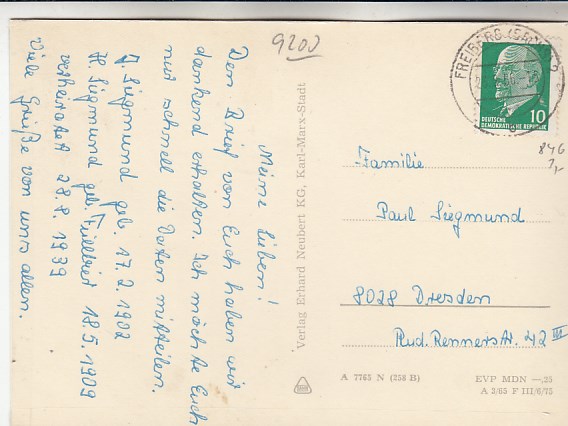 9200
Meine Lieben!
Den Brief von Euch haben wir
dankend erhalten. Ich möchte Euch
nur schnell die Daten mitteilen.
Siegmund geb. 17.2.1902
Siegmund geb. 18.5.1909
verheiratet 28.8.1939
Viele Grüße von uns allen.
Verlag Erhard Neubert KG, Karl-Marx-Stadt
FREIBERG (SACHS)
DEUTSCHE
DEMOKRATISCHE REPUBLIK
10
846
Familie
Paul Siegmund
8028 Dresden
Rud. Rennerstr. 42 III
A 7765 N (258 B)
EVP MDN —,25
A 2/65 F III/6/73